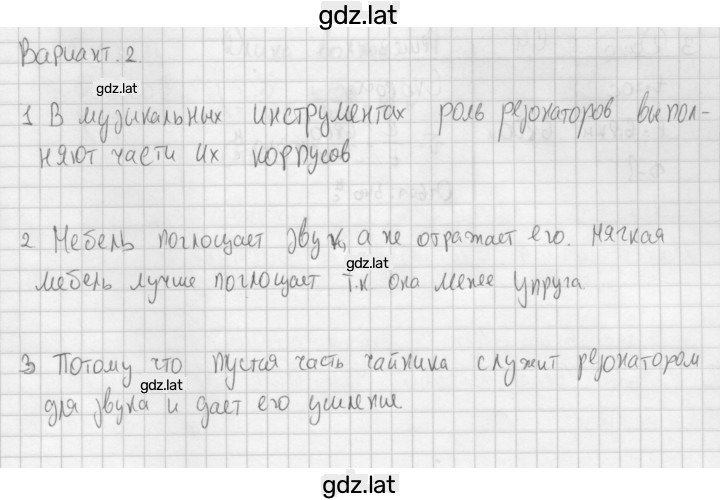 gdz.lat
Вариант. 2.
gdz.lat
1 В музикальных инструментах роль резонаторов выпол-
няют части их корпусов
2 Мебель поглощает звук, а не отражает его. мягкая
gdz.lat
мебель лучше поглощает т.к она менее упруга
3 Потому что пустая часть чайника служит резонатором
gdz.lat
для звука и дает его усиление.
gdz.lat